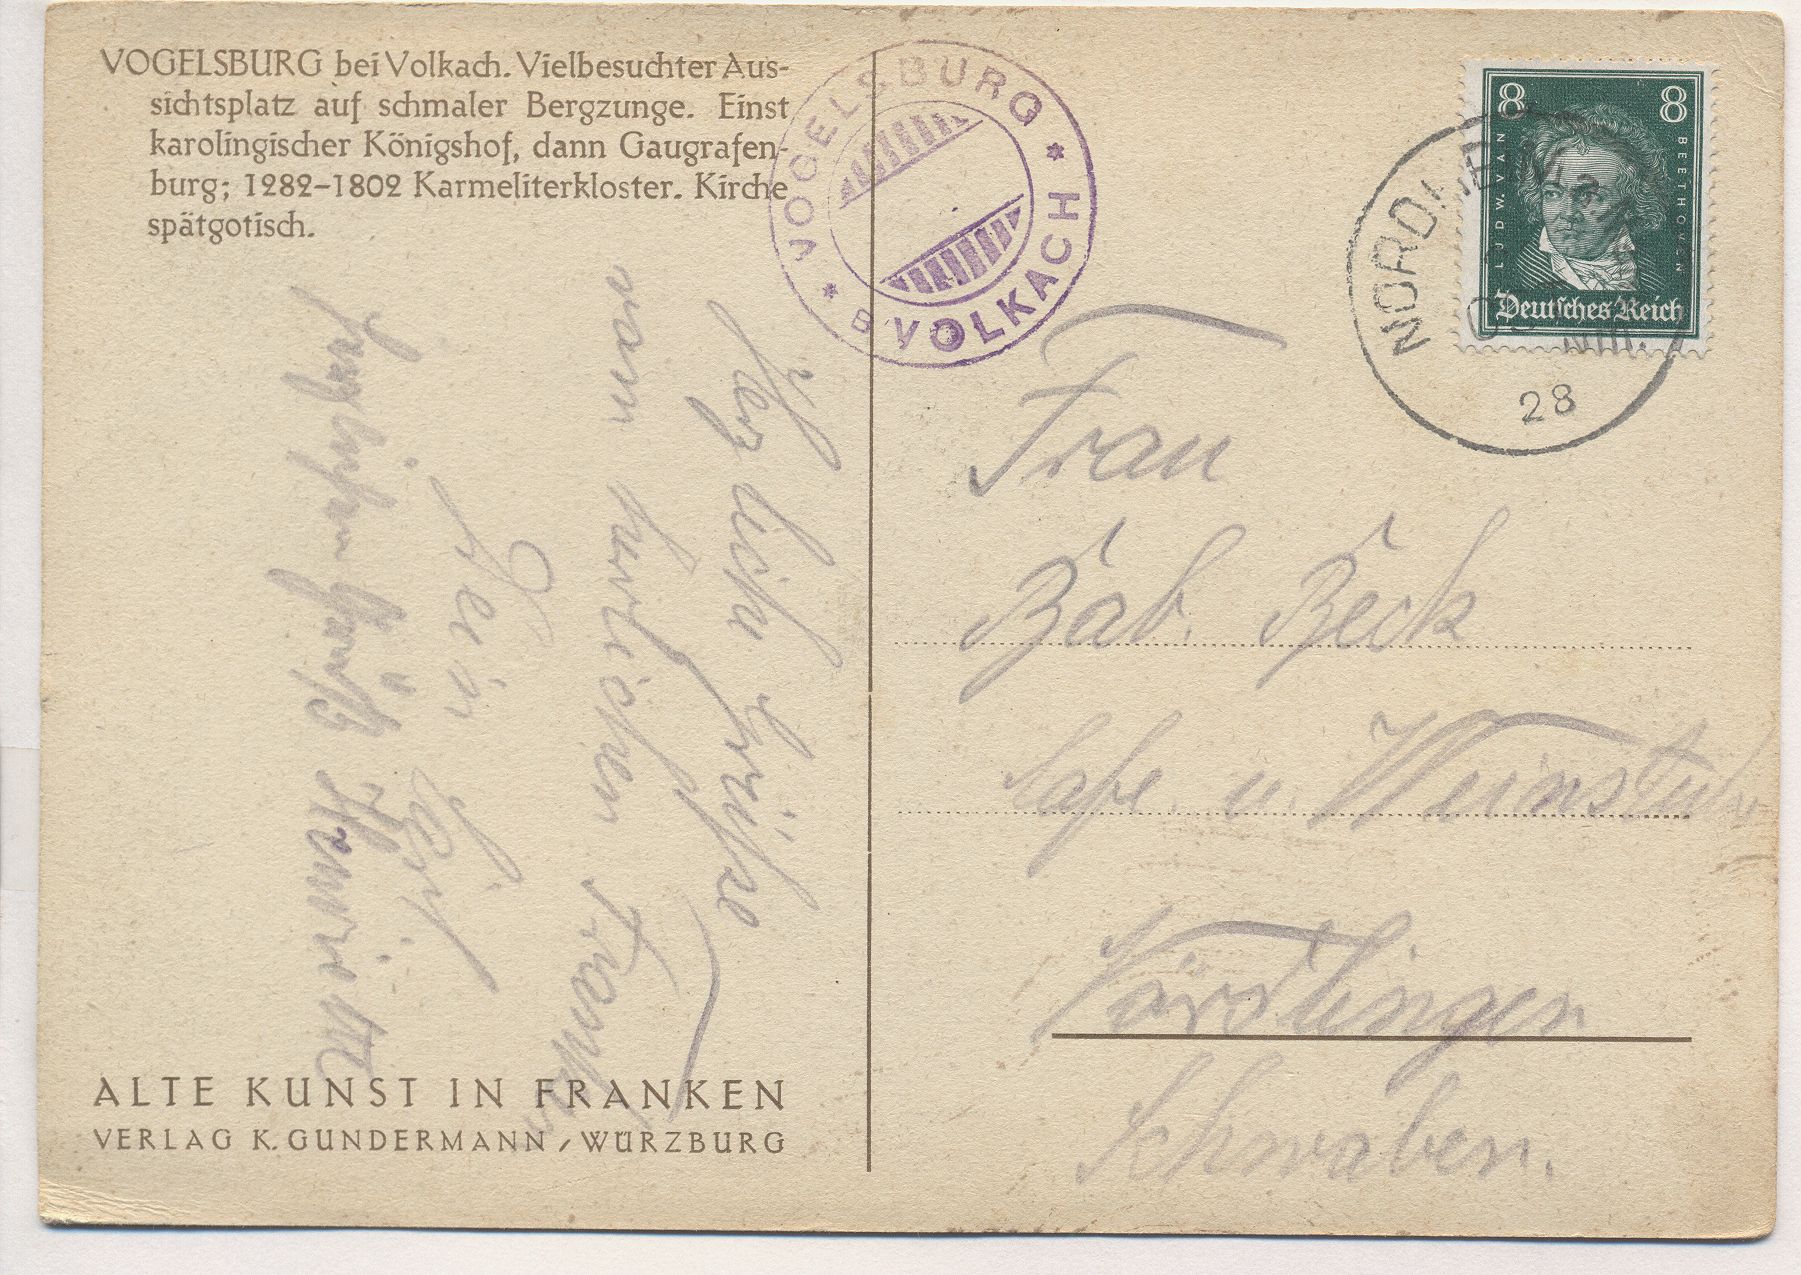 VOGELSBURG bei Volkach. Vielbesuchter Aus-
sichtsplatz auf schmaler Bergzunge. Einst
karolingischer Königshof, dann Gaugrafen-
burg; 1282–1802 Karmeliterkloster. Kirche
spätgotisch.
* VOGELSBURG *
B VOLKACH
8 8
LUDW. VAN BEETHOVEN
Deutsches Reich
28
Herzliche Grüße
vom herrlichen Franken
Frau
Bab. Beck
Cafe. u. Weinstube
Nördlingen
Schwaben.
ALTE KUNST IN FRANKEN
VERLAG K. GUNDERMANN / WÜRZBURG